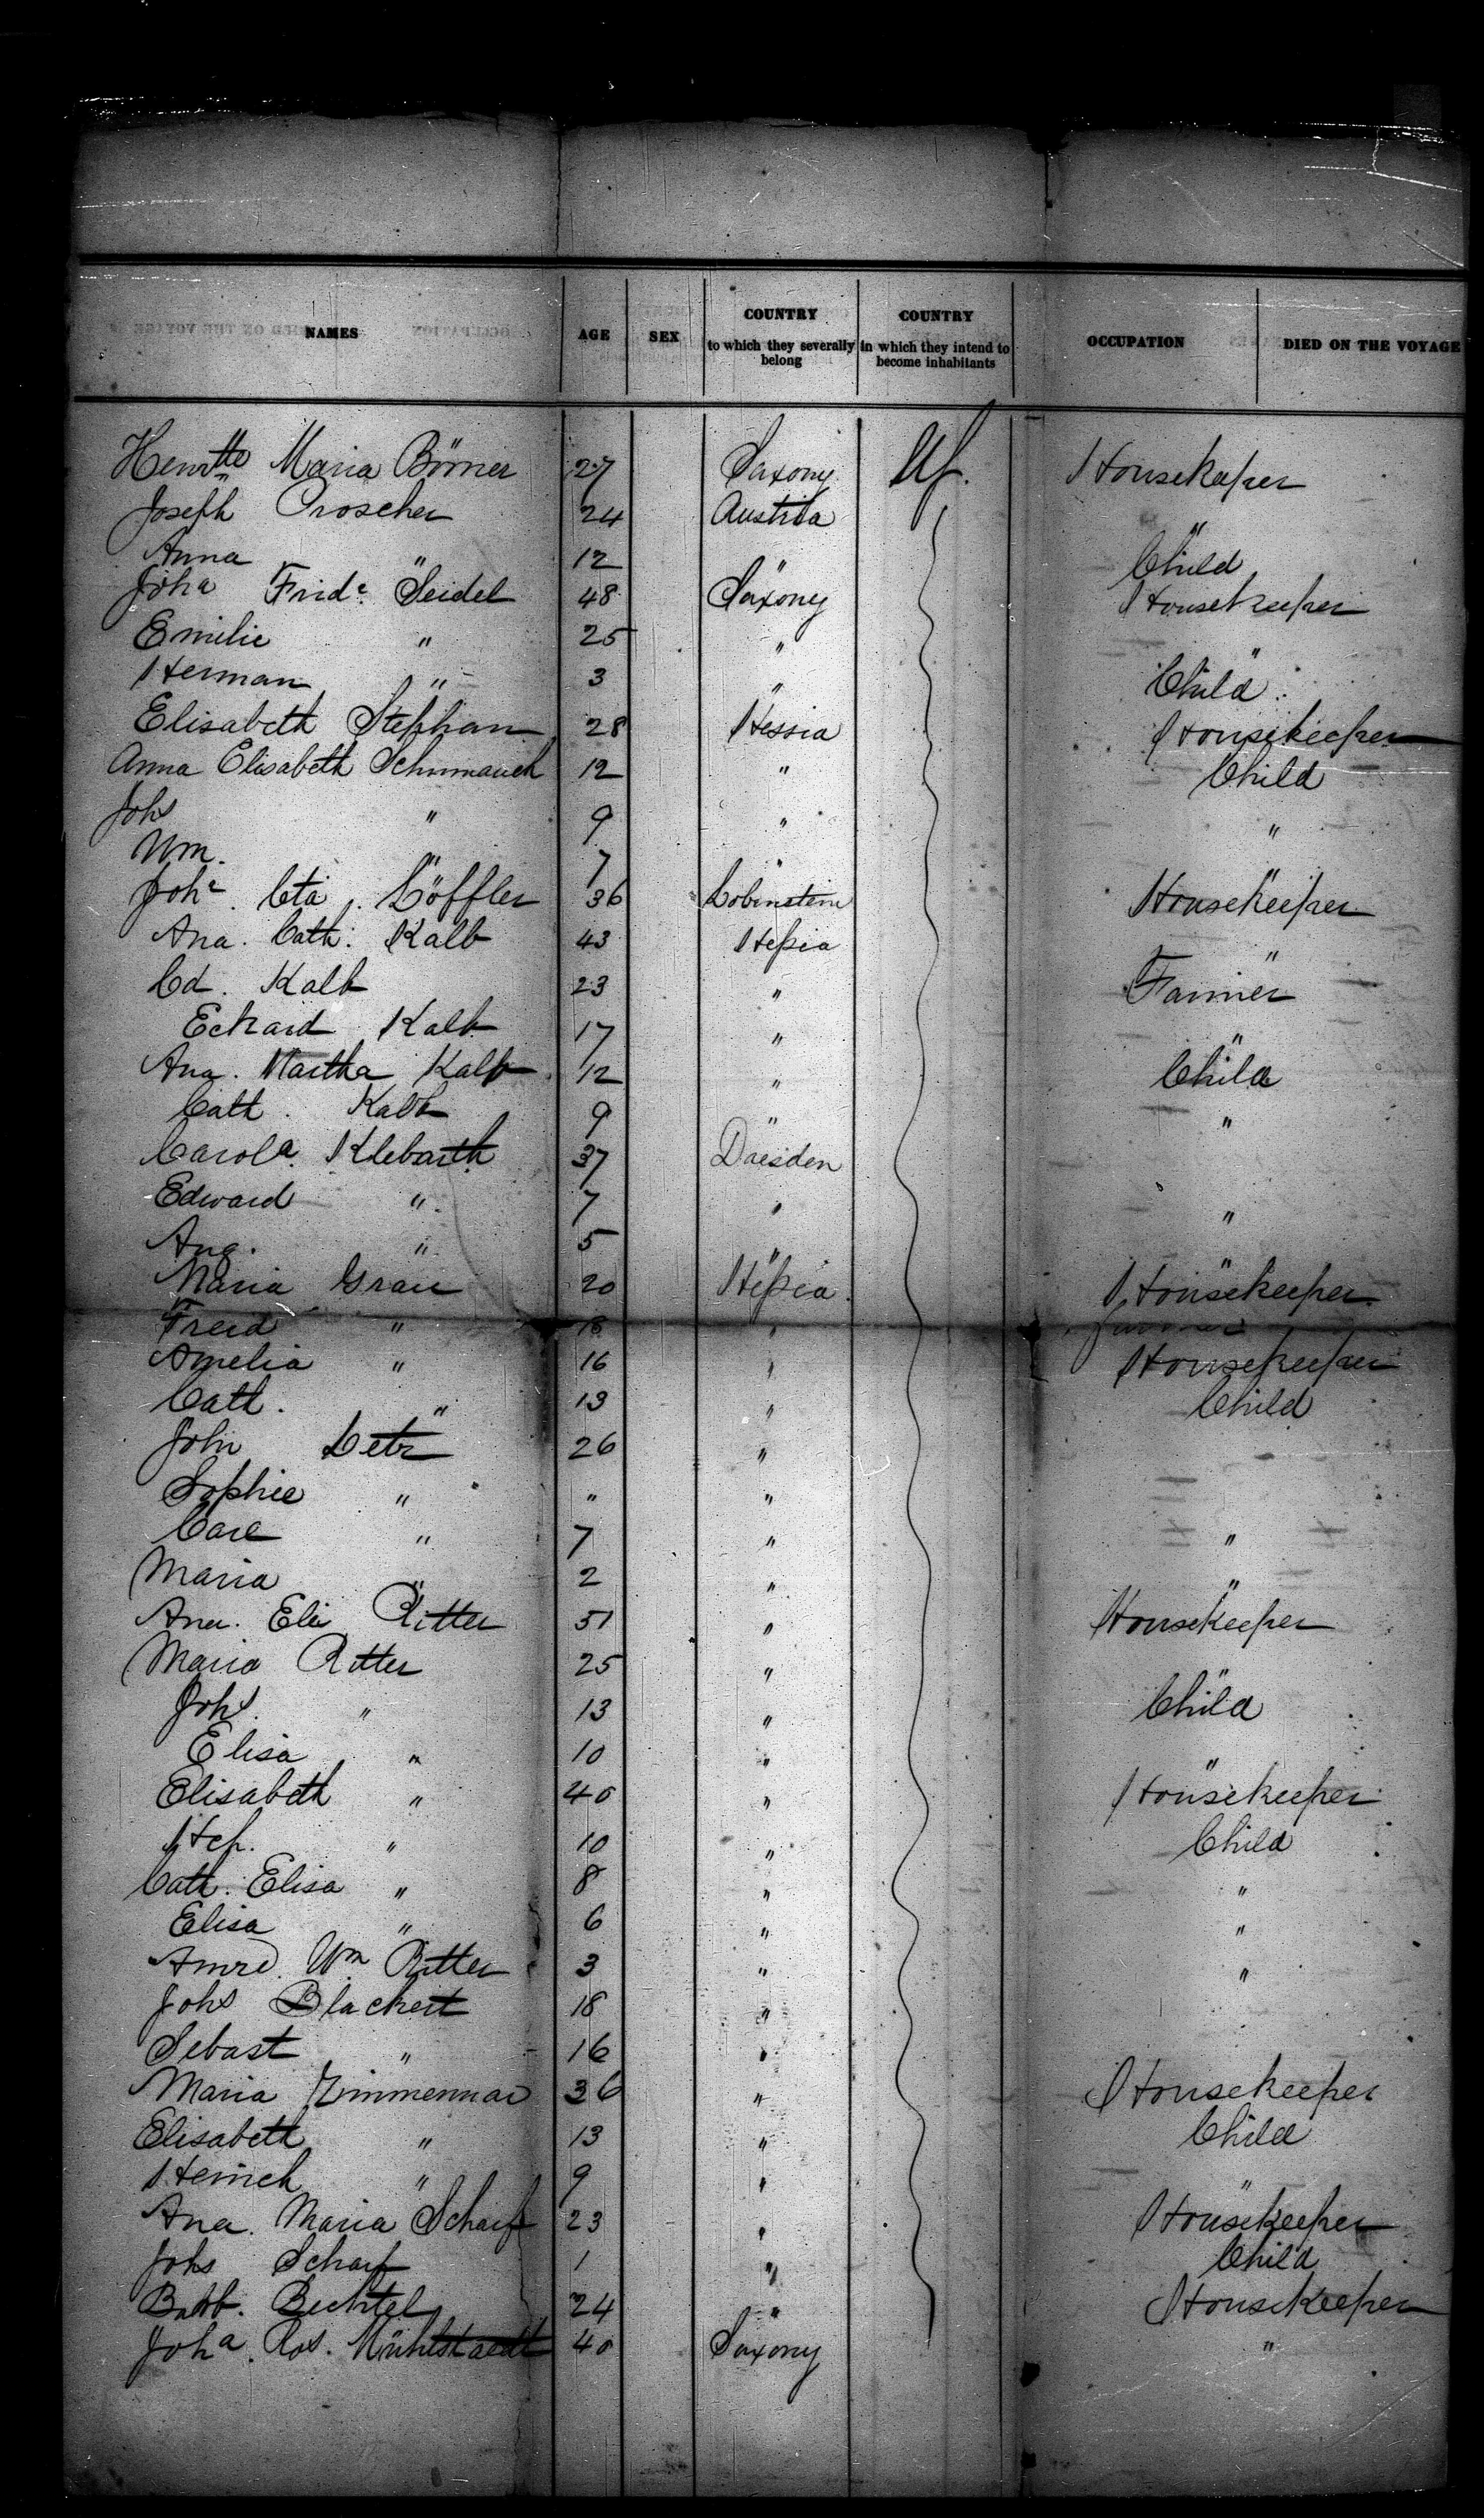 NAMES AGE SEX COUNTRY to which they severally belong COUNTRY in which they intend to become inhabitants OCCUPATION DIED ON THE VOYAGE
Henrtte Maria Börner 27 Saxony US. Housekeeper
Joseph Proscher 24 Austria "
Anna " 12 " Child
Joha Fride. Seidel 48 Saxony Housekeeper
Emilie " 25 " "
Herman " 3 " Child
Elisabeth Stephan 28 Hessia Housekeeper
Anna Elisabeth Schumauch 12 " Child
Johs " 9 " "
Wm. " 7 " "
Johe. Cta. Löffler 36 Lobenstein Housekeeper
Ana. Cath. Kalb 43 Hessia "
Cd. Kalb 23 " Farmer
Eckard Kalb 17 " "
Ana. Martha Kalb 12 " Child
Cath. Kalb 9 " "
Carola. Klebarth 37 Dresden
Edward " 7 " "
Aug. " 5 " "
Maria Grau 20 Hessia. Housekeeper
Freid " 18 " Farmer
Amelia " 16 " Housekeeper
Cath. " 13 " Child
John Letz 26 "
Sophie " " "
Carl " 7 " "
Maria " 2 " "
Ana. Eli Ritter 51 " Housekeeper
Maria Ritter 25 " "
Johs. " 13 " Child
Elisa " 10 " "
Elisabeth " 40 " Housekeeper
Hch. " 10 " Child
Cath. Elisa " 8 " "
Elisa " 6 " "
Wm Ritter 3 " "
Johs Blackert 18 "
Sebast " 16 "
Maria Zimmerman 36 " Housekeeper
Elisabeth " 13 " Child
Heinch " 9 " "
Ana. Maria Scharf 23 " Housekeeper
Johs Scharf 1 " Child
Barb. Bechtel 24 " Housekeeper
Joha. Ros. Mühlstaedt 40 Saxony "